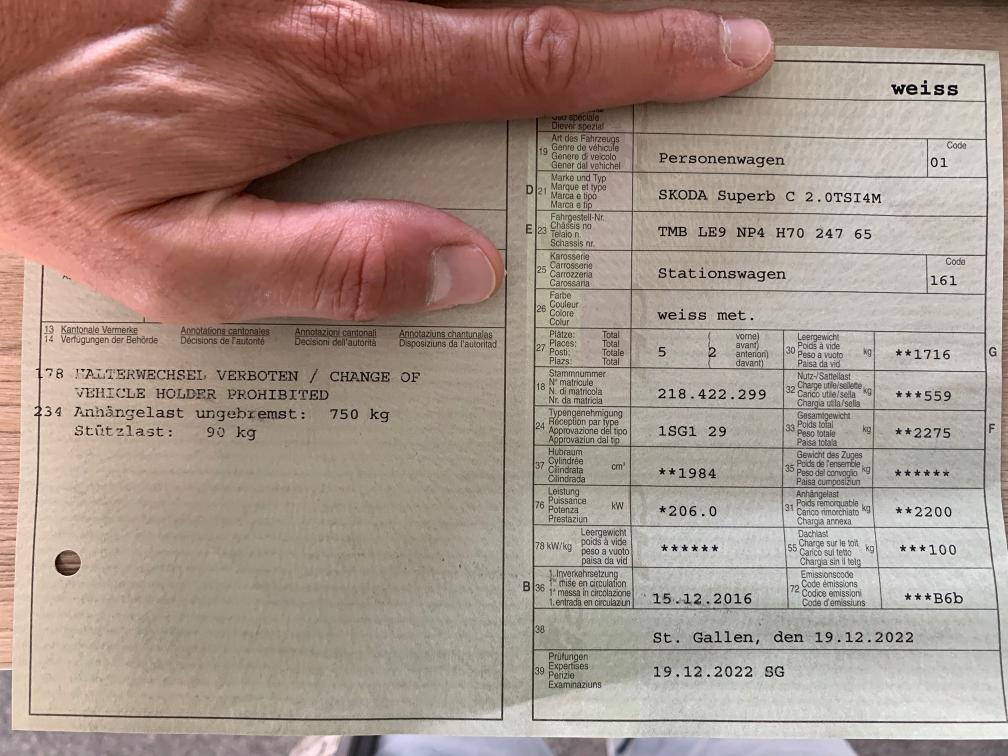 13 Kantonale Vermerke Annotations cantonales Annotazioni cantonali Annotaziuns chantunalas
14 Verfügungen der Behörde Décisions de l'autorité Decisioni dell'autorità Disposiziuns da l'autoritad
178 HALTERWECHSEL VERBOTEN / CHANGE OF
VEHICLE HOLDER PROHIBITED
234 Anhängelast ungebremst: 750 kg
Stützlast: 90 kg
weiss
Diever spezial
19 Art des Fahrzeugs
Genre de véhicule
Genere di veicolo
Gener dal vehichel
Personenwagen
Code
01
D 21 Marke und Typ
Marque et type
Marca e tipo
Marca e tip
SKODA Superb C 2.0TSI4M
E 23 Fahrgestell-Nr.
Châssis no
Telaio n.
Schassis nr.
TMB LE9 NP4 H70 247 65
25 Karosserie
Carrosserie
Carrozzeria
Carossaria
Stationswagen
Code
161
26 Farbe
Couleur
Colore
Colur
weiss met.
27 Plätze: Total
Places: Total
Posti: Totale
Plazs: Total
5 2
vorne)
avant)
anteriori)
davant)
30 Leergewicht
Poids à vide
Peso a vuoto
Paisa da vid
kg
**1716
G
18 Stammnummer
N° matricule
N. di matricola
Nr. da matricla
218.422.299
32 Nutz-/Sattellast
Charge utile/sellette
Carico utile/sella
Chargia utila/sella
kg
***559
24 Typengenehmigung
Réception par type
Approvazione del tipo
Approvaziun dal tip
1SG1 29
33 Gesamtgewicht
Poids total
Peso totale
Paisa totala
kg
**2275
F
37 Hubraum
Cylindrée
Cilindrata
Cilindrada
cm³
**1984
35 Gewicht des Zuges
Poids de l'ensemble
Peso del convoglio
Paisa cumposiziun
kg
******
76 Leistung
Puissance
Potenza
Prestaziun
kW
*206.0
31 Anhängelast
Poids remorquable
Carico rimorchiato
Chargia annexa
kg
**2200
78 kW/kg
Leergewicht
poids à vide
peso a vuoto
paisa da vid
******
55 Dachlast
Charge sur le toit
Carico sul tetto
Chargia sin il tetg
kg
***100
B 36 1. Inverkehrsetzung
1re mise en circulation
1a messa in circolazione
1. entrada en circulaziun
15.12.2016
72 Emissionscode
Code émissions
Codice emissioni
Code d'emissiuns
***B6b
38
St. Gallen, den 19.12.2022
39 Prüfungen
Expertises
Perizie
Examinaziuns
19.12.2022 SG